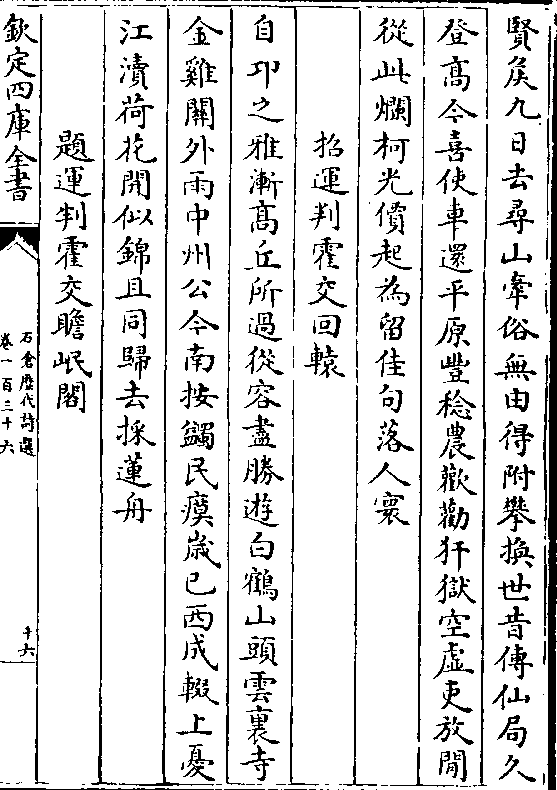 賢矦九日去尋山牽俗無由得附攀換世昔傳仙局久
登髙今喜使車還平原豐稔農歡勸犴獄空虛吏放閒
從此爛柯光價起為留佳句落人寰
招運判霍交回轅
自卭之雅漸髙丘所過從容盡勝遊白鶴山頭雲裏寺
金雞關外雨中州公今南按蠲民瘼歲已西成輟上憂
江瀆荷花開似錦且同歸去採蓮舟
題運判霍交瞻岷閣
欽定四庫全書
石倉歴代詩選
卷一百三十六
十六